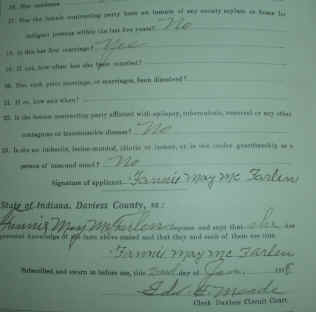 16. Her residence
17. Has the female contracting party been an inmate of any county asylum or home for
indigent persons within the last five years? No
18. Is this her first marriage? Yes
19. If not, how often has she been married?
20. Has such prior marriage, or marriages, been dissolved?
21. If so, how and when?
22. Is the female contracting party afflicted with epilepsy, tuberculosis, venereal or any other
contagious or transmissible disease? No
23. Is she an imbecile, feeble-minded, idiotic or insane, or is she under guardianship as a
person of unsound mind? No
Signature of applicant Fannie May Mc Farlen
State of Indiana, Daviess County, ss:
Fannie May McFarlen deposes and says that she has
personal knowledge of the facts above stated and that they and each of them are true.
Fannie May Mc Farlen
Subscribed and sworn to before me, this 2nd day of Jan. 191
Meade
Clerk Daviess Circuit Court.